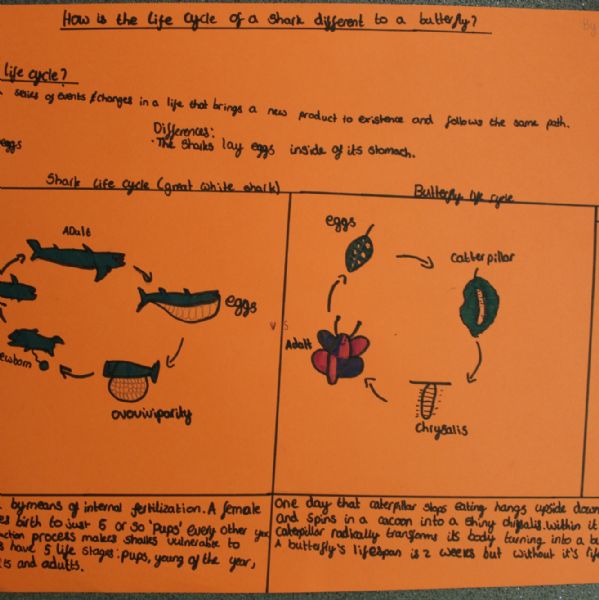 How is the life cycle of a shark different to a butterfly?
By
life cycle?
series of events & changes in a life that brings a new product to existence and follows the same path.
Differences:
eggs
The sharks lay eggs inside of its stomach.
Shark life cycle (great white shark)
Butterfly life cycle
Adult
eggs
ovoviviparity
ewborn
vs
eggs
Catterpillar
Chrysalis
Adult
by means of internal fertilization. A female
es birth to just 5 or so 'pups' every other year
uction process makes sharks vulnerable to
s have 5 life stages: pups, young of the year,
ts and adults.
One day that caterpillar stops eating hangs upside down
and spins in a cacoon into a shiny chrysalis. Within it
caterpillar radically transforms its body turning into a bu
A butterfly's lifespan is 2 weeks but without it's life